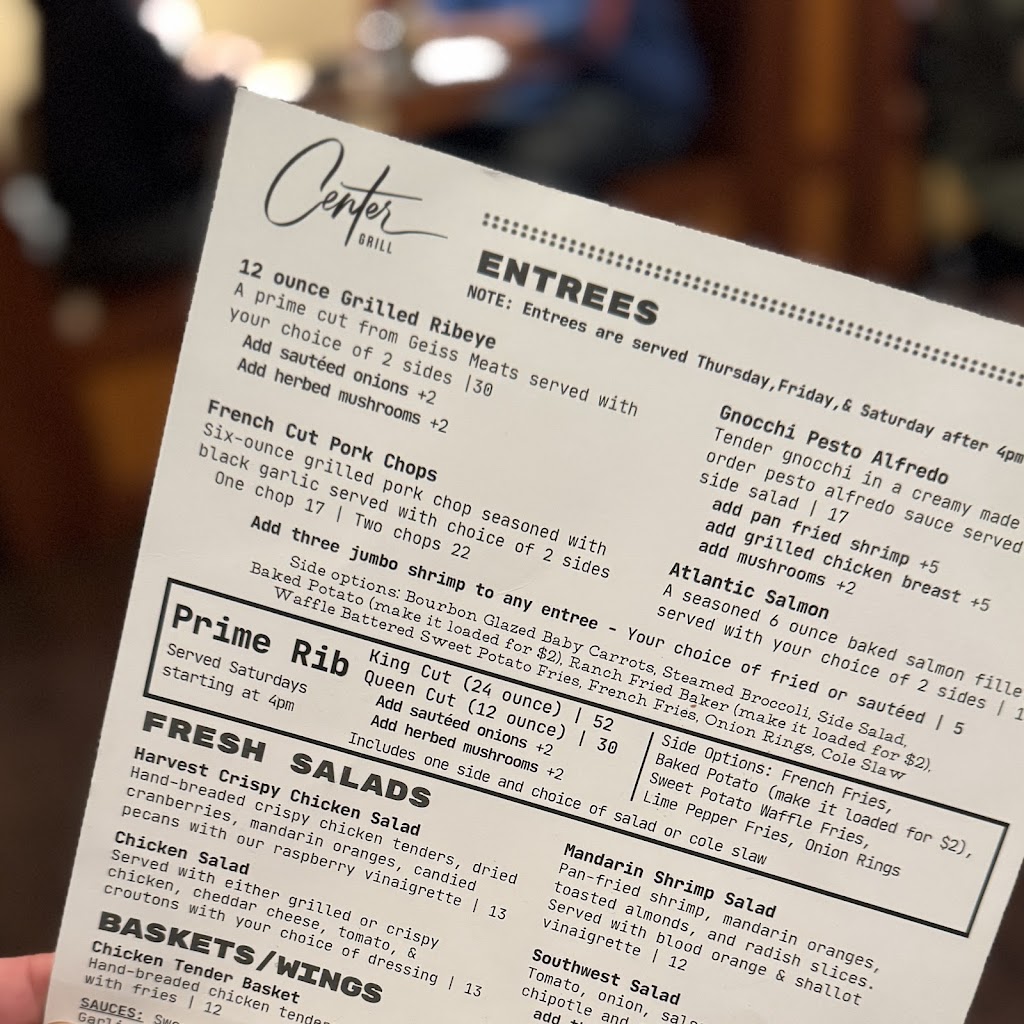 Center
GRILL
ENTREES
NOTE: Entrees are served Thursday,Friday,& Saturday after 4pm
12 ounce Grilled Ribeye
A prime cut from Geiss Meats served with
your choice of 2 sides |30
Add sautéed onions +2
Add herbed mushrooms +2
French Cut Pork Chops
Six-ounce grilled pork chop seasoned with
black garlic served with choice of 2 sides
One chop 17 | Two chops 22
Gnocchi Pesto Alfredo
Tender gnocchi in a creamy made
order pesto alfredo sauce served
side salad | 17
add pan fried shrimp +5
add grilled chicken breast +5
add mushrooms +2
Atlantic Salmon
A seasoned 6 ounce baked salmon fille
served with your choice of 2 sides |
Add three jumbo shrimp to any entree - Your choice of fried or sautéed | 5
Side options: Bourbon Glazed Baby Carrots, Steamed Broccoli, Side Salad,
Baked Potato (make it loaded for $2), Ranch Fried Baker (make it loaded for $2),
Waffle Battered Sweet Potato Fries, French Fries, Onion Rings, Cole Slaw
Prime Rib
Served Saturdays
starting at 4pm
King Cut (24 ounce) | 52
Queen Cut (12 ounce) | 30
Add sautéed onions +2
Add herbed mushrooms +2
Includes one side and choice of salad or cole slaw
Side Options: French Fries,
Baked Potato (make it loaded for $2),
Sweet Potato Waffle Fries,
Lime Pepper Fries, Onion Rings
FRESH SALADS
Harvest Crispy Chicken Salad
Hand-breaded crispy chicken tenders, dried
cranberries, mandarin oranges, candied
pecans with our raspberry vinaigrette | 13
Chicken Salad
Served with either grilled or crispy
chicken, cheddar cheese, tomato, &
croutons with your choice of dressing | 13
Mandarin Shrimp Salad
Pan-fried shrimp, mandarin oranges,
toasted almonds, and radish slices.
Served with blood orange & shallot
vinaigrette | 12
Southwest Salad
Tomato, onion, sals
chipotle and
add
BASKETS/WINGS
Chicken Tender Basket
Hand-breaded chicken tender
with fries | 12
SAUCES: Swe
Garli